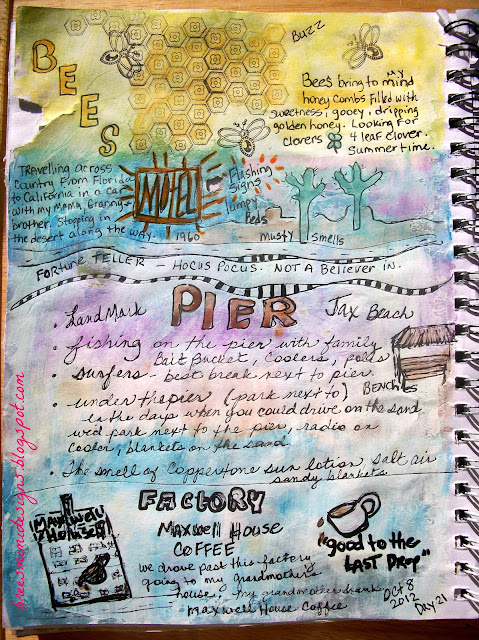 BEES
Buzz
Bees bring to my mind
honey combs filled with
sweetness, gooey, dripping
golden honey. Looking for
clovers 4 leaf clover.
Summertime.
Travelling across
country from Florida
to California in a car
with my Mama, Granny &
brother. Stopping in
the desert along the way.
1960
MOTEL
Flashing
signs
lumpy
Beds
musty smells
FORTUNE TELLER - HOCUS POCUS. NOT A BELIEVER IN.
PIER
• LandMark
Jax Beach
• fishing on the pier with family
Bait Bucket, Coolers, poles
• Surfers - best break next to pier.
BENCHES
• under the pier (park next to)
in the days when you could drive on the sand
we'd park next to the pier, radio on
cooler, blankets on the sand.
• The smell of Coppertone sun lotion salt air
sandy blankets
FACTORY
MAXWELL
HOUSE
MAXWELL HOUSE
COFFEE
we drove past this factory
going to my grandmother's
house, my grandmother drank
Maxwell House Coffee
"good to the
LAST DROP"
Oct 8
2012
Day 21
breesmimidesigns.blogspot.com